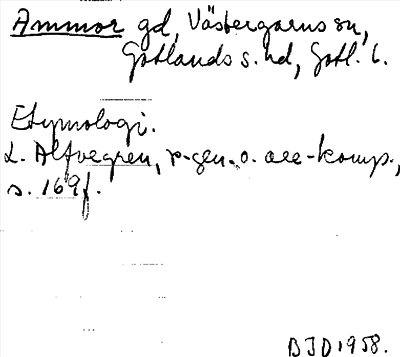 Ammor gd, Västergarns sn,
Gotlands s. hd, Gotl. l.
Etymologi.
L. Alfvegren, r-gen. o. ace-komp.,
s. 169f.
BJD 1958.